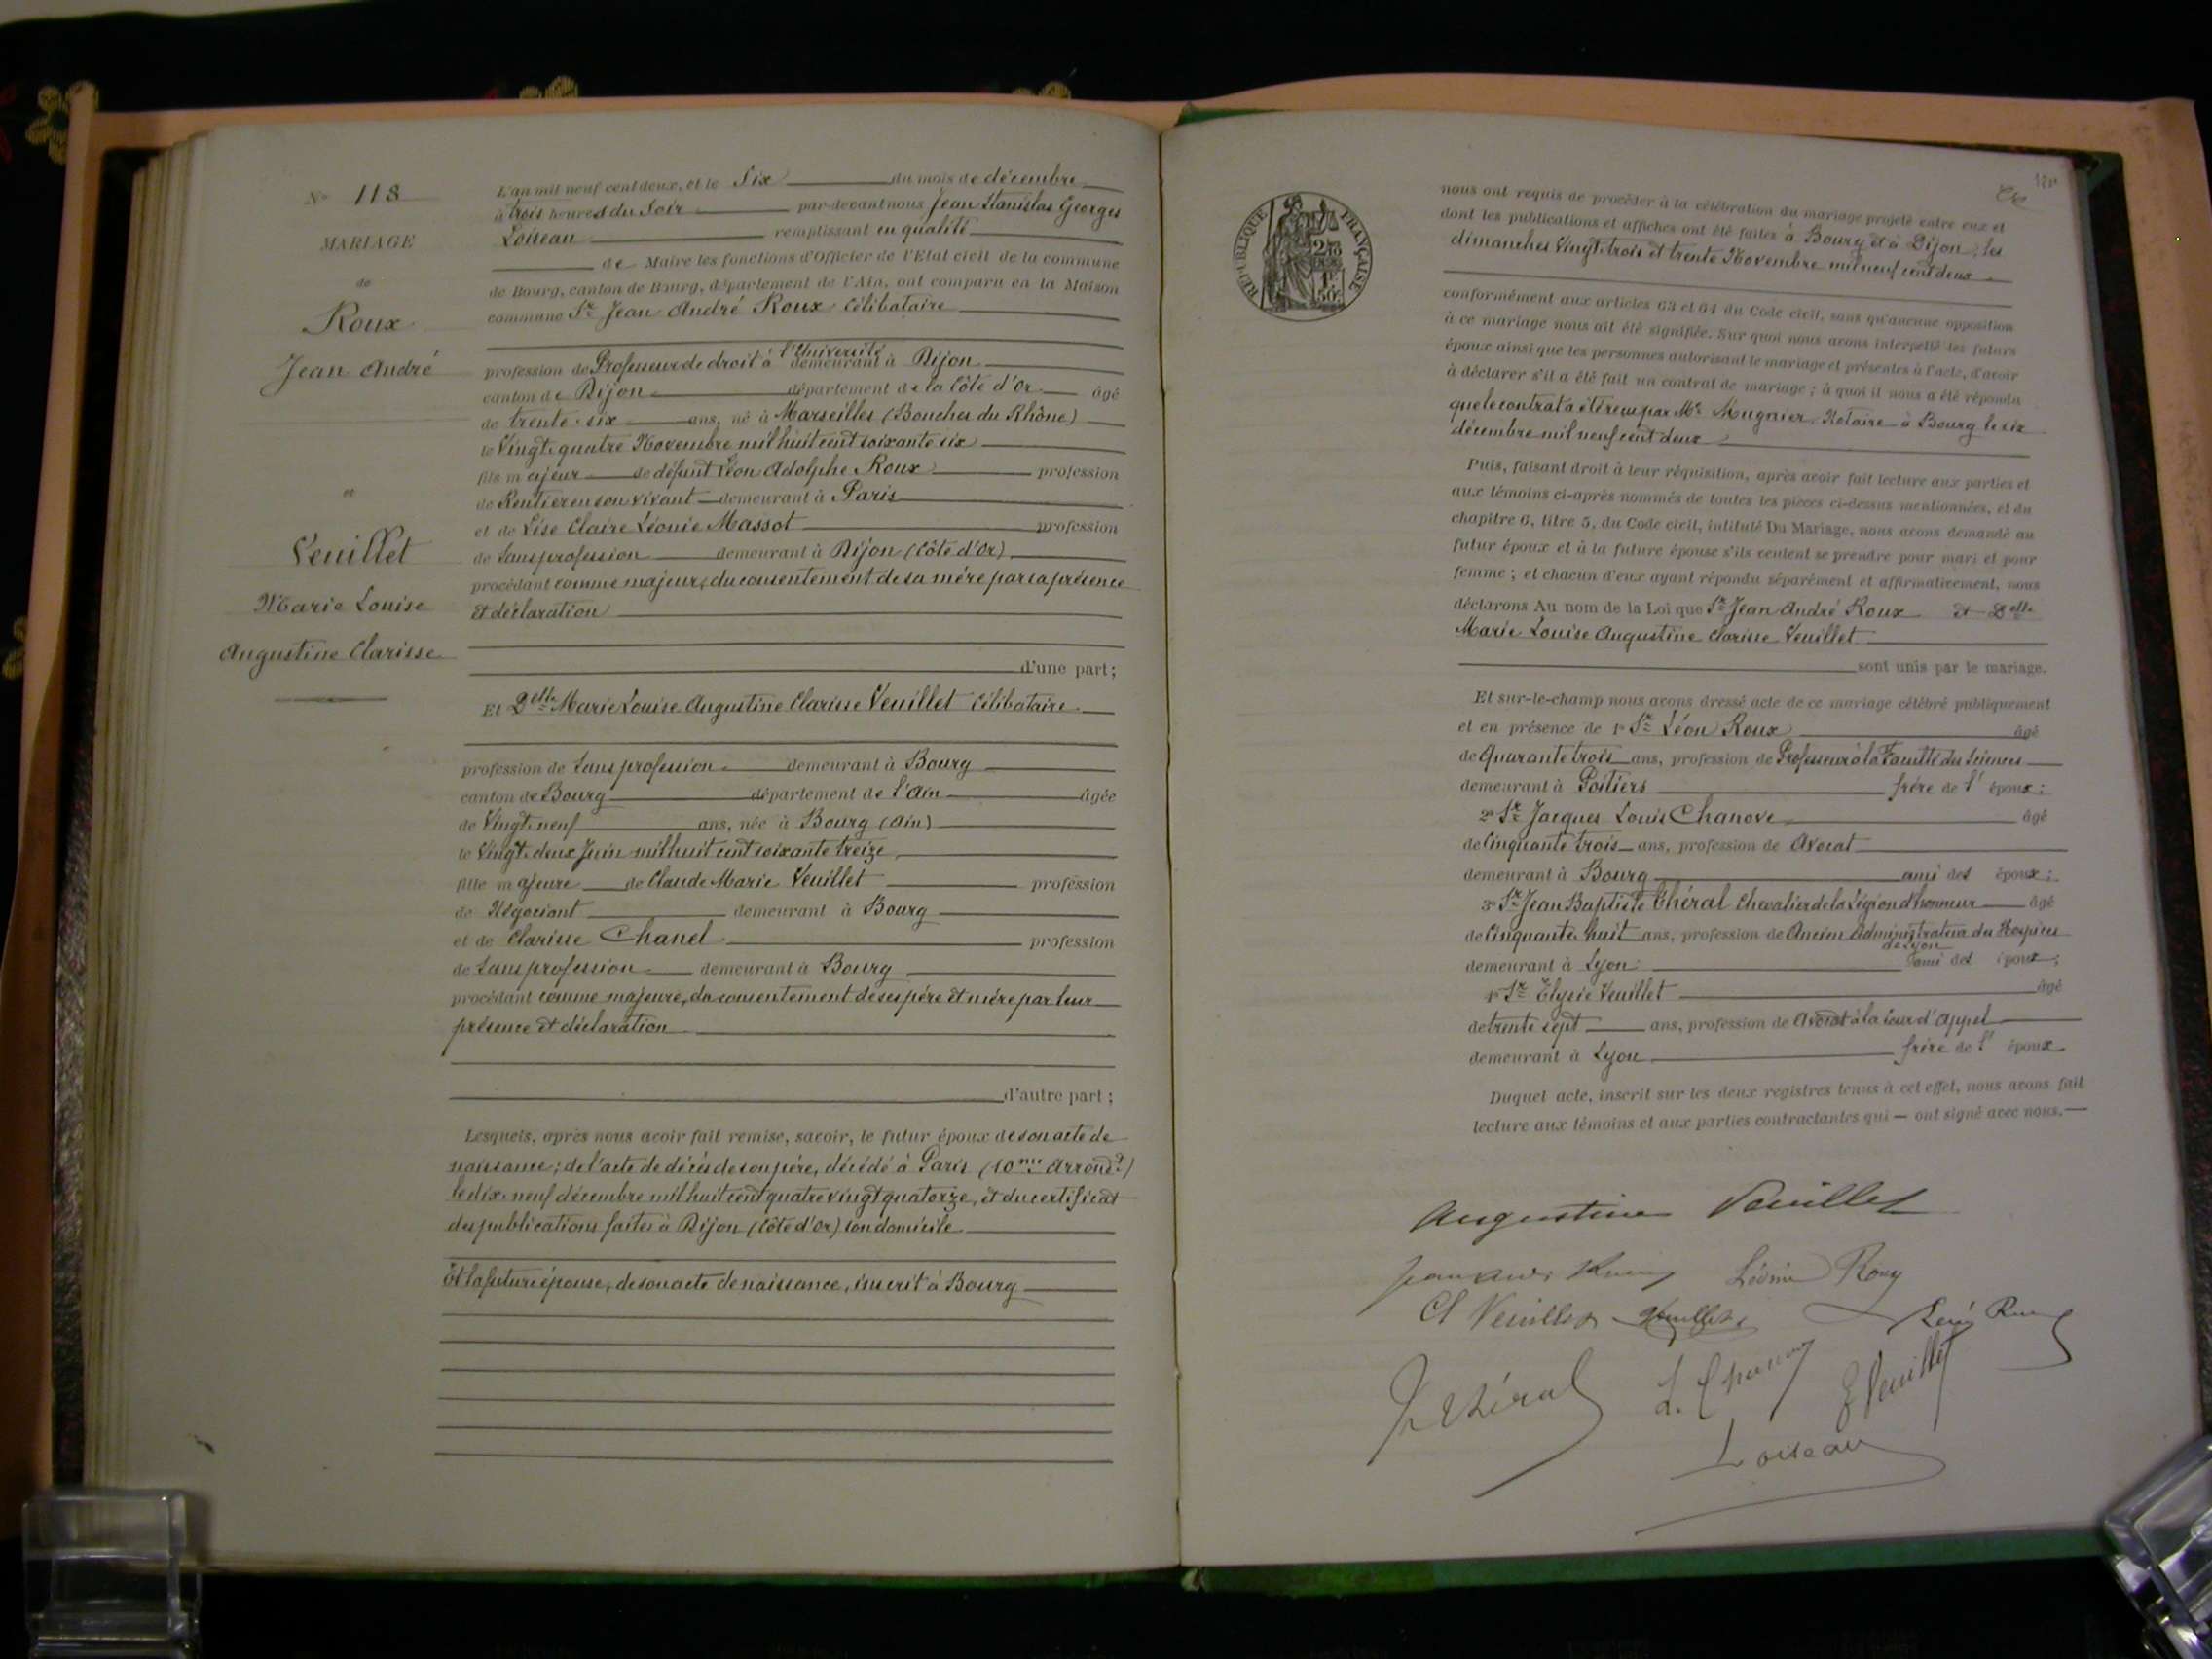 N° 118
MARIAGE
de
Roux
Jean André
et
Veuillet
Marie Louise
Augustine Clarisse
L'an mil neuf cent deux, et le Six du mois de décembre
à trois heures du Soir par-devant nous Jean Stanislas Georges
Loiseau remplissant en qualité
de Maire les fonctions d'Officier de l'Etat civil de la commune
de Bourg, canton de Bourg, département de l'Ain, ont comparu en la Maison
commune Sr Jean André Roux Célibataire
profession de Professeur de droit à l'Université demeurant à Dijon
canton de Dijon département de la Côte d'Or âgé
de trente-six ans, né à Marseilles (Bouches du Rhône)
le Vingt-quatre Novembre mil huit cent soixante six
fils majeur de défunt Léon Adolphe Roux profession
de Rentier en son vivant demeurant à Paris
et de Lise Claire Léonie Massot profession
de Sans profession demeurant à Dijon (Côte d'Or)
procédant comme majeur, du consentement de sa mère par sa présence
et déclaration
d'une part;
Et Delle Marie Louise Augustine Clarisse Veuillet Célibataire
profession de Sans profession demeurant à Bourg
canton de Bourg département de l'Ain âgée
de Vingt-neuf ans, née à Bourg (Ain)
le Vingt-deux Juin mil huit cent soixante treize
fille majeure de Claude Marie Veuillet profession
de Négociant demeurant à Bourg
et de Clarisse Chanel profession
de Sans profession demeurant à Bourg
procédant comme majeure, du consentement de ses père et mère par leur
présence et déclaration
d'autre part;
Lesquels, après nous avoir fait remise, savoir, le futur époux de son acte de
naissance; de l'acte de décès de son père, décédé à Paris (10me Arrondt)
le dix-neuf décembre mil huit cent quatre vingt quatorze, et du certificat
des publications faites à Dijon (Côte d'Or) son domicile
Et la future épouse, de son acte de naissance, inscrit à Bourg
RÉPUBLIQUE FRANÇAISE
nous ont requis de procéder à la célébration du mariage projeté entre eux et
dont les publications et affiches ont été faites à Bourg et à Dijon, les
dimanches Vingt-trois et trente Novembre mil neuf cent deux
conformément aux articles 63 et 64 du Code civil, sans qu'aucune opposition
à ce mariage nous ait été signifiée. Sur quoi nous avons interpellé les futurs
époux ainsi que les personnes autorisant le mariage et présentes à l'acte, d'avoir
à déclarer s'il a été fait un contrat de mariage; à quoi il nous a été répondu
que le contrat a été reçu par Me Mugnier, Notaire à Bourg le six
décembre mil neuf cent deux
Puis, faisant droit à leur réquisition, après avoir fait lecture aux parties et
aux témoins ci-après nommés de toutes les pièces ci-dessus mentionnées, et du
chapitre 6, titre 5, du Code civil, intitulé Du Mariage, nous avons demandé au
futur époux et à la future épouse s'ils veulent se prendre pour mari et pour
femme; et chacun d'eux ayant répondu séparément et affirmativement, nous
déclarons Au nom de la Loi que Sr Jean André Roux et Delle
Marie Louise Augustine Clarisse Veuillet
sont unis par le mariage.
Et sur-le-champ nous avons dressé acte de ce mariage célébré publiquement
et en présence de 1° Sr Léon Roux âgé
de Quarante trois ans, profession de Professeur à la Faculté des Sciences
demeurant à Poitiers frère de l' époux;
2° Sr Jacques Louis Chanove âgé
de Cinquante trois ans, profession de Avocat
demeurant à Bourg ami des époux;
3° Sr Jean Baptiste Théral Chevalier de la Légion d'honneur âgé
de Cinquante huit ans, profession de Ancien Administrateur des Hospices
de Lyon
demeurant à Lyon ami des époux;
4° Sr Elysée Veuillet âgé
de trente sept ans, profession de Avocat à la Cour d'Appel
demeurant à Lyon frère de l' épouse
Duquel acte, inscrit sur les deux registres tenus à cet effet, nous avons fait
lecture aux témoins et aux parties contractantes qui — ont signé avec nous.
Augustine Veuillet
Jean André Roux Léonie Roux
Cl Veuillet Veuillet Léon Roux
J. Théral L. Chanove E Veuillet
Loiseau